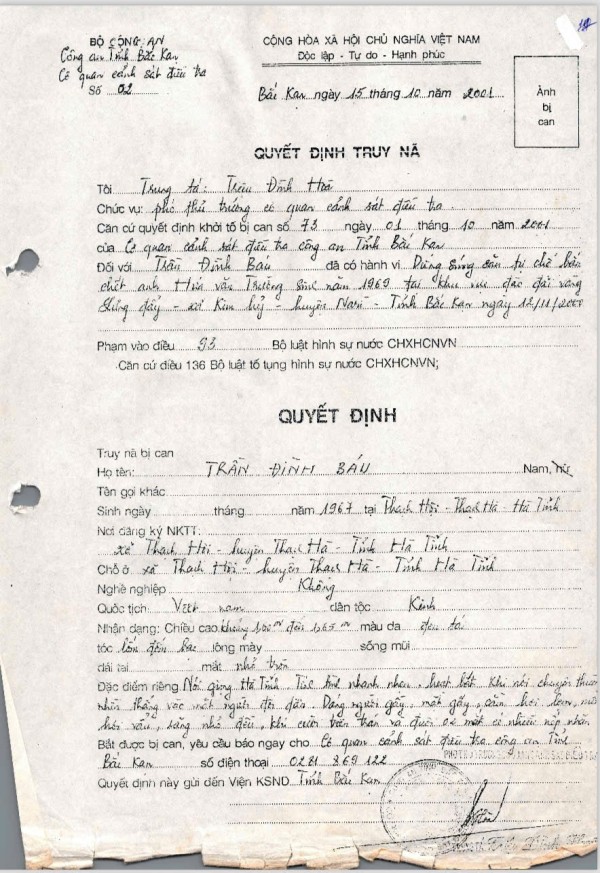 BỘ CÔNG AN
Công an Tỉnh Bắc Kạn
Cơ quan cảnh sát điều tra
Số 02
CỘNG HÒA XÃ HỘI CHỦ NGHĨA VIỆT NAM
Độc lập - Tự do - Hạnh phúc
Bắc Kạn ngày 15 tháng 10 năm 2001
Ảnh
bị
can
QUYẾT ĐỊNH TRUY NÃ
Tôi Trung tá: Triệu Đình Hoà
Chức vụ: phó thủ trưởng cơ quan cảnh sát điều tra
Căn cứ quyết định khởi tố bị can số 73 ngày 01 tháng 10 năm 2001
của Cơ quan cảnh sát điều tra công an Tỉnh Bắc Kạn
Đối với Trần Đình Báu đã có hành vi Dùng súng săn tự chế bắn
chết anh Hứa văn Trường sinh năm 1969 tại khu vực đào đãi vàng
đẩy - xã Kim hỷ - huyện Narì - Tỉnh Bắc Kạn ngày 12/11/2000
Phạm vào điều 93 Bộ luật hình sự nước CHXHCNVN
Căn cứ điều 136 Bộ luật tố tụng hình sự nước CHXHCNVN;
QUYẾT ĐỊNH
Truy nã bị can
Họ tên: TRẦN ĐÌNH BÁU Nam, nữ
Tên gọi khác
Sinh ngày tháng năm 1967 tại Thạch Hội - Thạch Hà - Hà Tĩnh
Nơi đăng ký NKTT:
xã Thạch Hội - huyện Thạch Hà - Tỉnh Hà Tĩnh
Chỗ ở xã Thạch Hội - huyện Thạch Hà - Tỉnh Hà Tĩnh
Nghề nghiệp Không
Quốc tịch Việt nam dân tộc Kinh
Nhận dạng: Chiều cao khoảng đến 1m65 màu da đen tái
tóc bạc lông mày sống mũi
dái tai mắt nhỏ tròn
Đặc điểm riêng Nói giọng Hà Tĩnh, Tính tình nhanh nhẹn, hoạt bát. Khi nói chuyện thường
nhìn thẳng vào mặt người đối diện. Dáng người gầy, mặt gầy, cằm hơi lẹm, mũi
hơi, răng nhỏ đều, khi cười trên trán và đuôi 02 mắt có nhiều nếp nhăn
Bắt được bị can, yêu cầu báo ngay cho Cơ quan cảnh sát điều tra công an Tỉnh
Bắc Kạn số điện thoại 0281 869 122
Quyết định này gửi đến Viện KSND Tỉnh Bắc Kạn